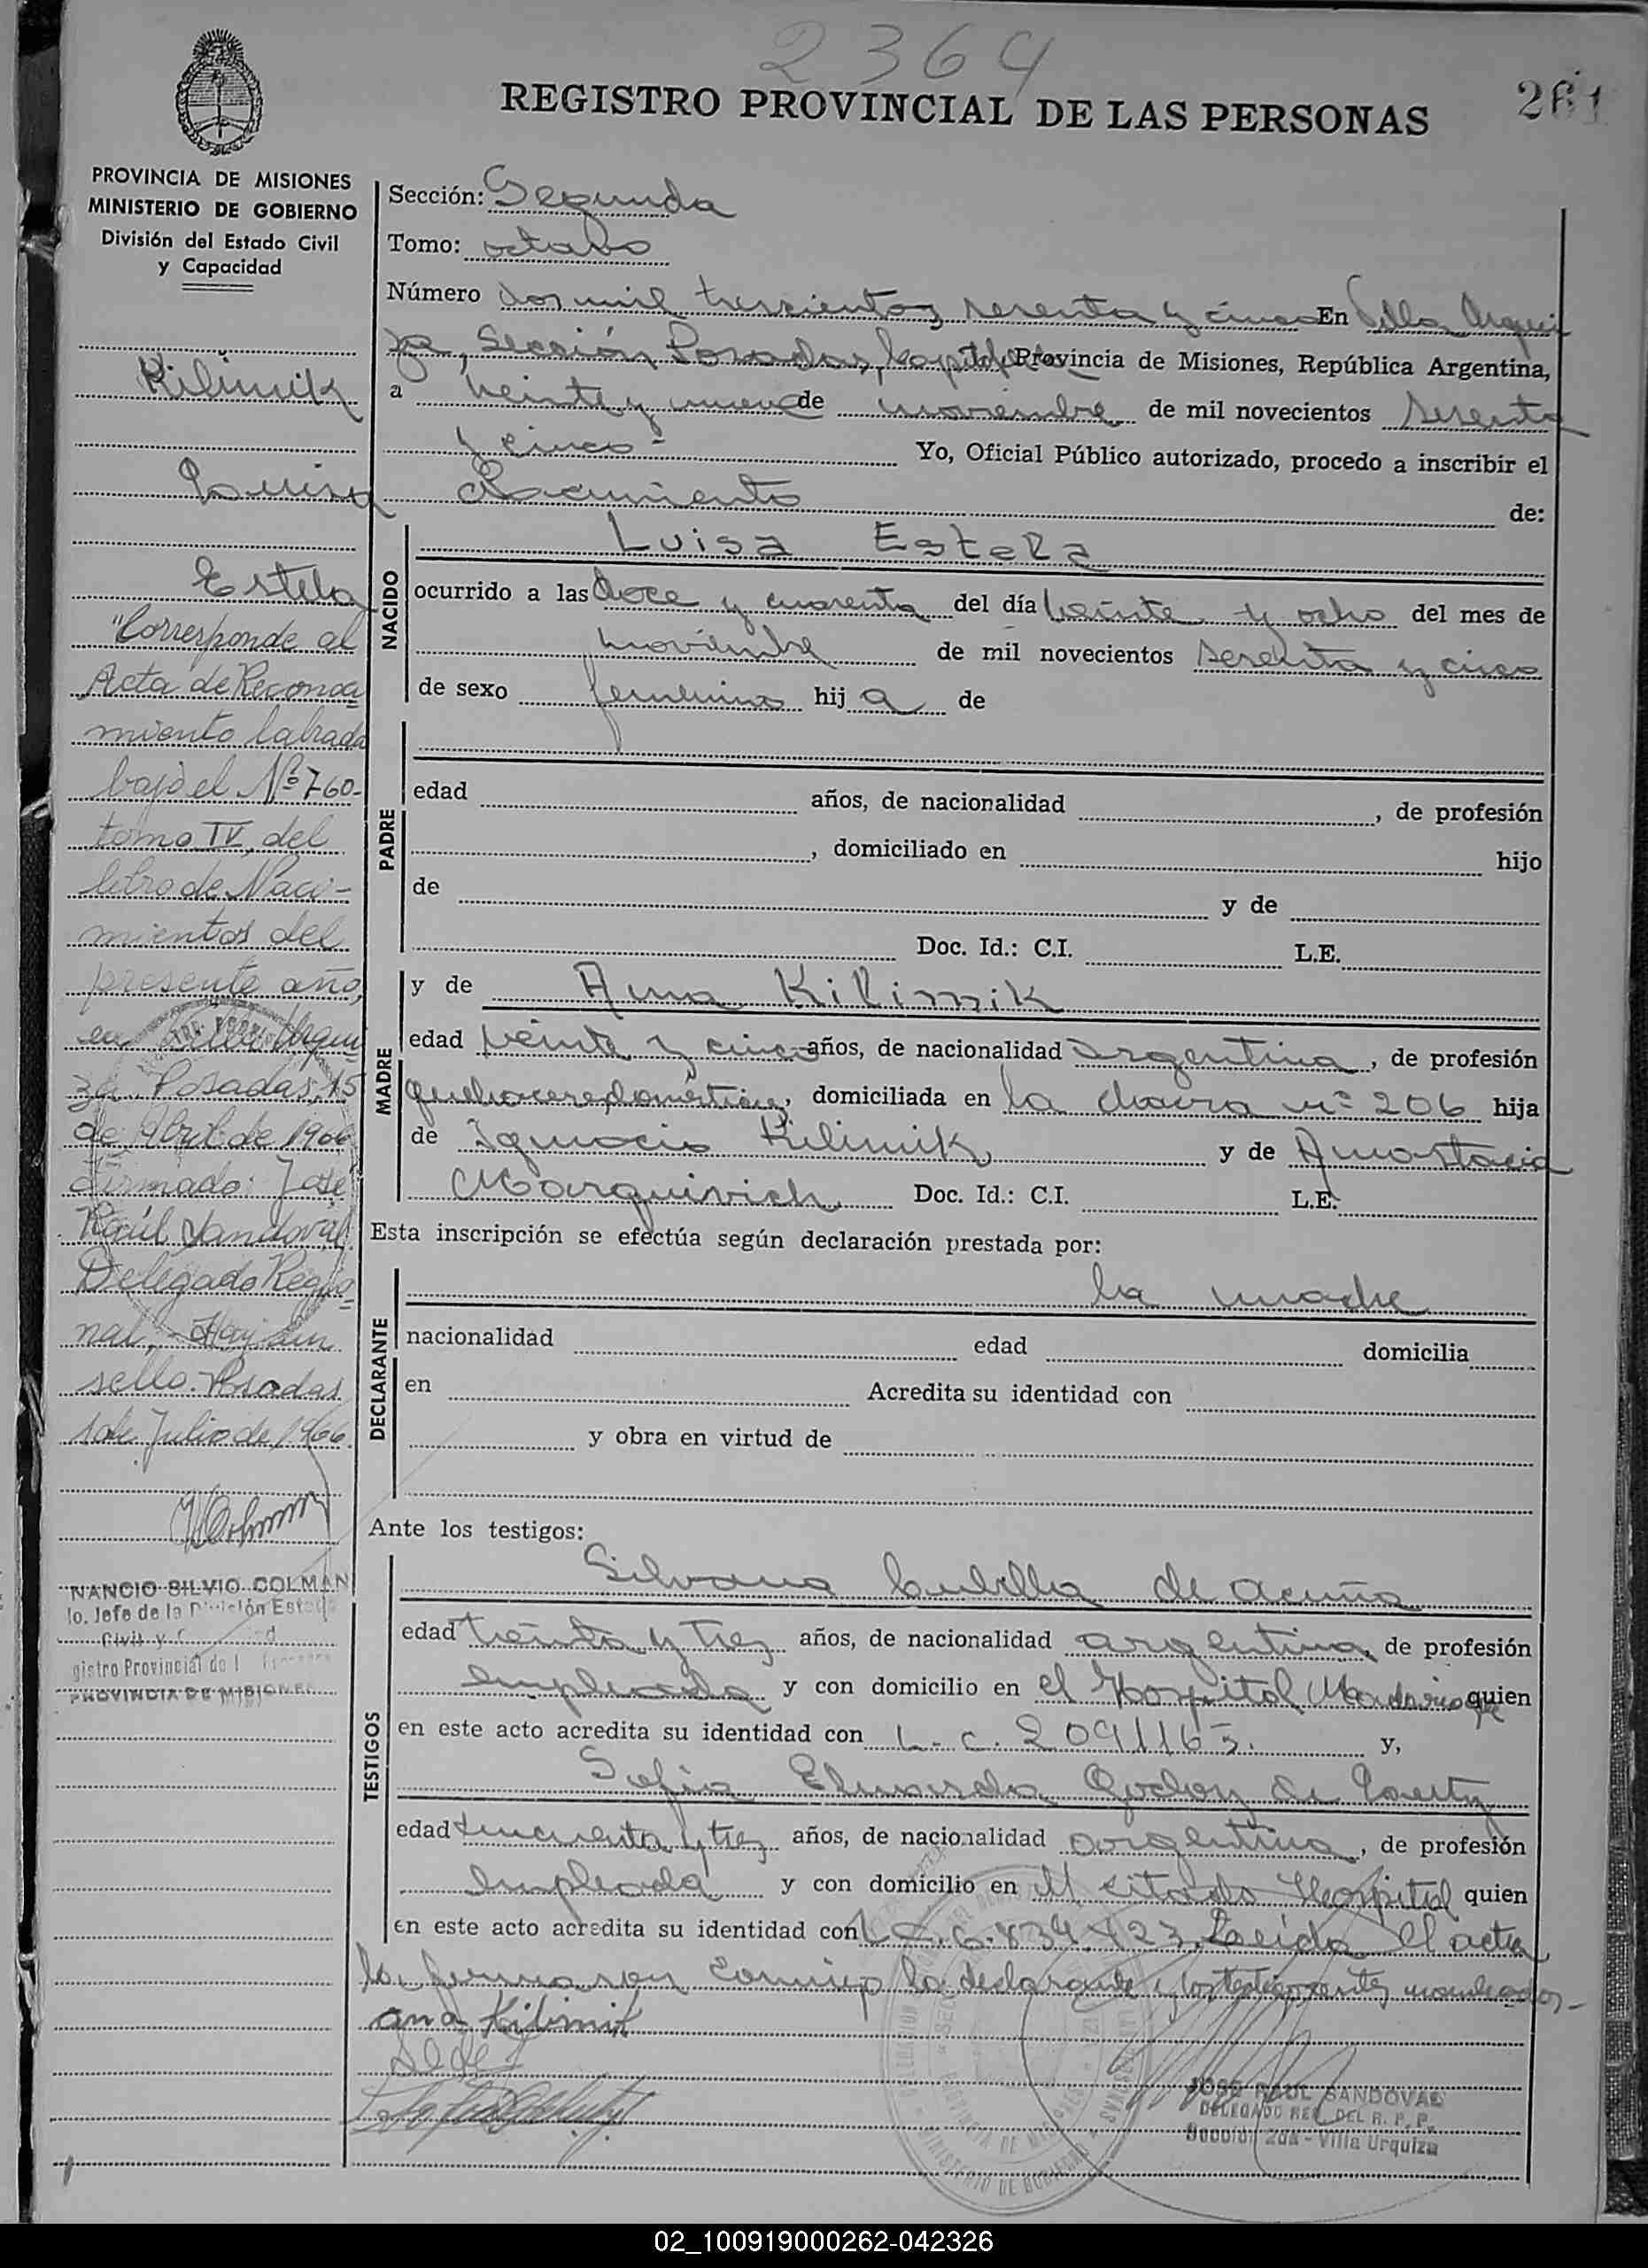 2364
REGISTRO PROVINCIAL DE LAS PERSONAS
261
PROVINCIA DE MISIONES
MINISTERIO DE GOBIERNO
División del Estado Civil
y Capacidad
Kilimik
Luisa
Estela
"Corresponde al
Acta de Reconoci
miento labrada
bajo el Nº 760-
tomo IV, del
libro de Naci-
mientos del
presente año,
en Villa Urqui
za. Posadas, 15
de Abril de 1966
Firmado: José
Raúl Sandoval
Delegado Regio
nal, -Hay un
sello. Posadas
1 de Julio de 1966
NANCIO SILVIO COLMAN
Jefe de la División Estado
Civil y
gistro Provincial de l
PROVINCIA DE MISIONES
Sección: Segunda
Tomo: octabo
Número dos mil trescientos sesenta y cinco En Villa Urqui
za, Sección Posadas, Capital, Provincia de Misiones, República Argentina,
a veinte y nueve de noviembre de mil novecientos sesenta
y cinco- Yo, Oficial Público autorizado, procedo a inscribir el
Nacimiento de:
NACIDO
Luisa Estela
ocurrido a las doce y cuarenta del día veinte y ocho del mes de
noviembre de mil novecientos sesenta y cinco
de sexo femenino hija de
PADRE
edad años, de nacionalidad , de profesión
, domiciliado en hijo
de y de
Doc. Id.: C.I. L.E.
MADRE
y de Ana Kilimik
edad veinte y cinco años, de nacionalidad argentina, de profesión
quehaceres domésticos, domiciliada en la chacra nº 206 hija
de Ignacio Kilimik y de Anastacia
Marquivich Doc. Id.: C.I. L.E.
Esta inscripción se efectúa según declaración prestada por:
DECLARANTE
la madre
nacionalidad edad domicilia
en Acredita su identidad con
y obra en virtud de
Ante los testigos:
TESTIGOS
Silvana Cubilla de Acuña
edad treinta y tres años, de nacionalidad argentina, de profesión
empleada y con domicilio en el Hospital Madariaga quien
en este acto acredita su identidad con L. C. 2091165. y,
Sofia Eduarda Godoy de
edad cincuenta y tres años, de nacionalidad argentina, de profesión
empleada y con domicilio en el citado Hospital quien
en este acto acredita su identidad con L.C. 6.839.423. Leída el acta
la firman con conmigo la declarante y los testigos antes nombrados-
ana Kilimik
JOSE RAUL SANDOVAL
DELEGADO REG. DEL R. P. P.
Sección 2da - Villa Urquiza
02_100919000262-042326